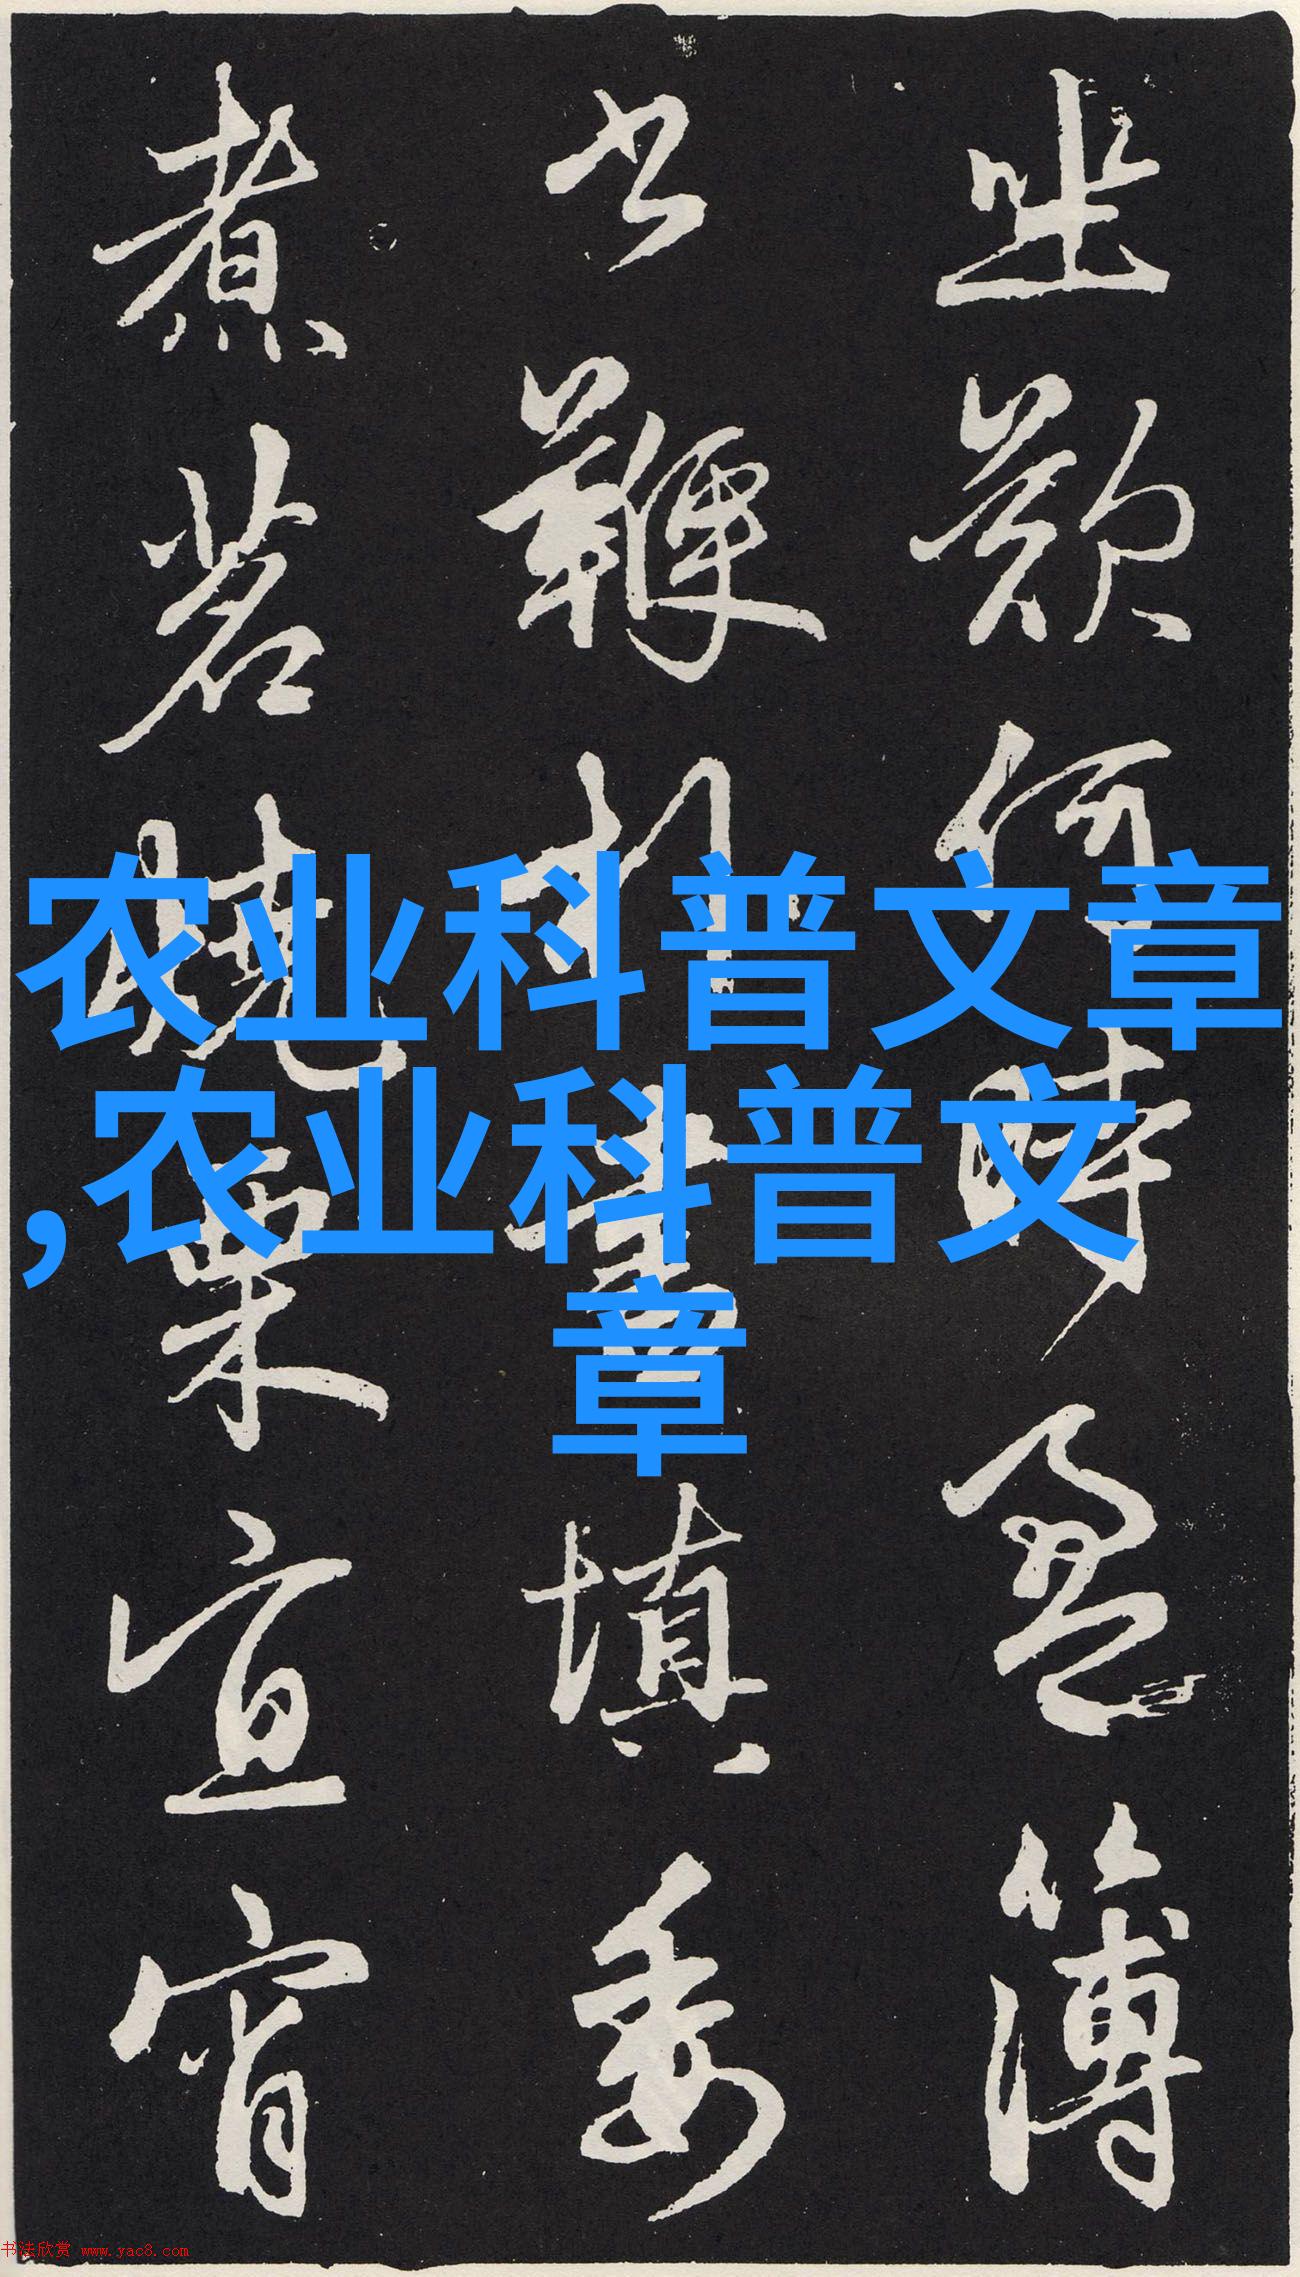 坐歎何時盈簿
書鞭扑晝填委
煮茗燒栗宜宵
农业科普文章
,农业科普文
章
书法欣赏 www.yac8.com